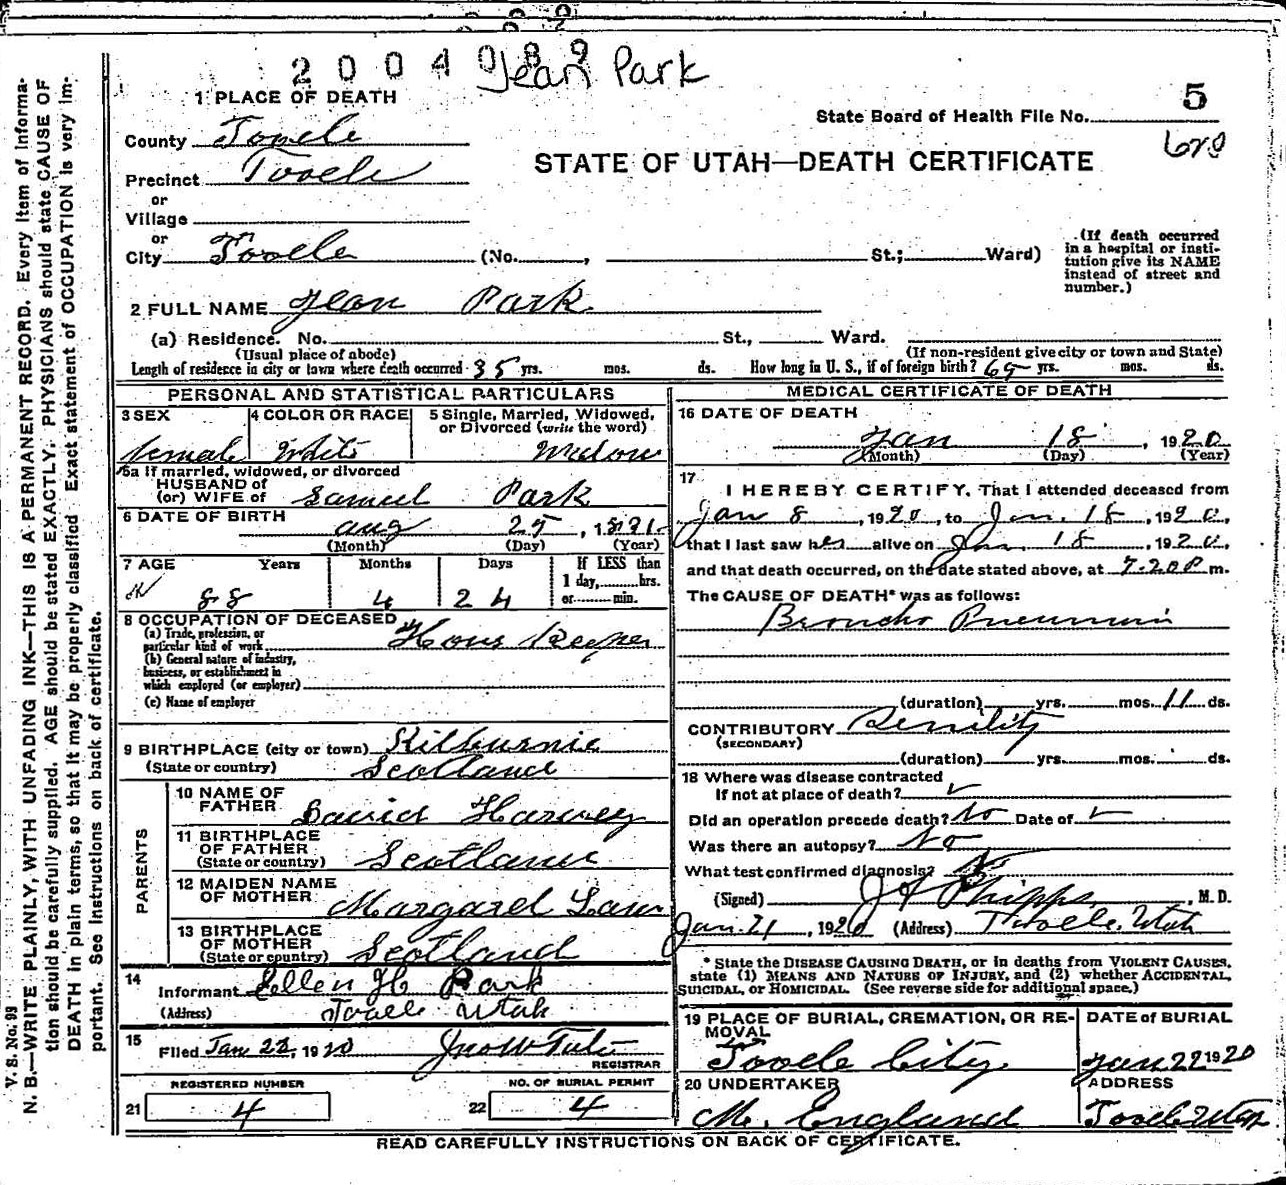 2004089
Jean Park
1 PLACE OF DEATH
State Board of Health File No. 5
County Tooele
STATE OF UTAH—DEATH CERTIFICATE
Precinct Tooele
or
Village
or
City Tooele (No. , St.; Ward)
(If death occurred
in a hospital or insti-
tution give its NAME
instead of street and
number.)
2 FULL NAME Jean Park
(a) Residence. No. St., Ward.
(Usual place of abode) (If non-resident give city or town and State)
Length of residence in city or town where death occurred 35 yrs. mos. ds. How long in U. S., if of foreign birth? 65 yrs. mos. ds.
PERSONAL AND STATISTICAL PARTICULARS
3 SEX 4 COLOR OR RACE 5 Single, Married, Widowed,
or Divorced (write the word)
female White Widow
5a If married, widowed, or divorced
HUSBAND of
(or) WIFE of Samuel Park
6 DATE OF BIRTH
Aug 25, 1831
(Month) (Day) (Year)
7 AGE Years Months Days If LESS than
1 day, hrs.
88 4 24 or min.
8 OCCUPATION OF DECEASED
(a) Trade, profession, or
particular kind of work House Keeper
(b) General nature of industry,
business, or establishment in
which employed (or employer)
(c) Name of employer
9 BIRTHPLACE (city or town) Kilburnie
(State or country) Scotland
PARENTS
10 NAME OF
FATHER David Harvey
11 BIRTHPLACE
OF FATHER
(State or country) Scotland
12 MAIDEN NAME
OF MOTHER Margaret Law
13 BIRTHPLACE
OF MOTHER
(State or country) Scotland
14
Informant Ellen H Park
(Address) Tooele Utah
15
Filed Jan 22, 1920 Jno W Tate
REGISTRAR
REGISTERED NUMBER NO. OF BURIAL PERMIT
21 4 22 4
MEDICAL CERTIFICATE OF DEATH
16 DATE OF DEATH
Jan 18, 1920
(Month) (Day) (Year)
17
I HEREBY CERTIFY, That I attended deceased from
Jan 8, 1920, to Jan. 18, 1920,
that I last saw her alive on Jan. 18, 1920,
and that death occurred, on the date stated above, at 7.20 P m.
The CAUSE OF DEATH* was as follows:
Broncho Pneumonia
(duration) yrs. mos. 11 ds.
CONTRIBUTORY Senility
(SECONDARY)
(duration) yrs. mos. ds.
18 Where was disease contracted
If not at place of death? ✓
Did an operation precede death? No Date of ✓
Was there an autopsy? No
What test confirmed diagnosis? No
(Signed) J A Phipps, M. D.
Jan. 21, 1920 (Address) Tooele, Utah
* State the DISEASE CAUSING DEATH, or in deaths from VIOLENT CAUSES,
state (1) MEANS AND NATURE OF INJURY, and (2) whether ACCIDENTAL,
SUICIDAL, or HOMICIDAL. (See reverse side for additional space.)
19 PLACE OF BURIAL, CREMATION, OR RE-
MOVAL
DATE of BURIAL
Tooele City. Jan 22 1920
20 UNDERTAKER ADDRESS
M. England Tooele Utah
READ CAREFULLY INSTRUCTIONS ON BACK OF CERTIFICATE.
V. S. No. 99
N. B.—WRITE PLAINLY, WITH UNFADING INK—THIS IS A PERMANENT RECORD. Every item of informa-
tion should be carefully supplied. AGE should be stated EXACTLY. PHYSICIANS should state CAUSE OF
DEATH in plain terms, so that it may be properly classified. Exact statement of OCCUPATION is very im-
portant. See instructions on back of certificate.